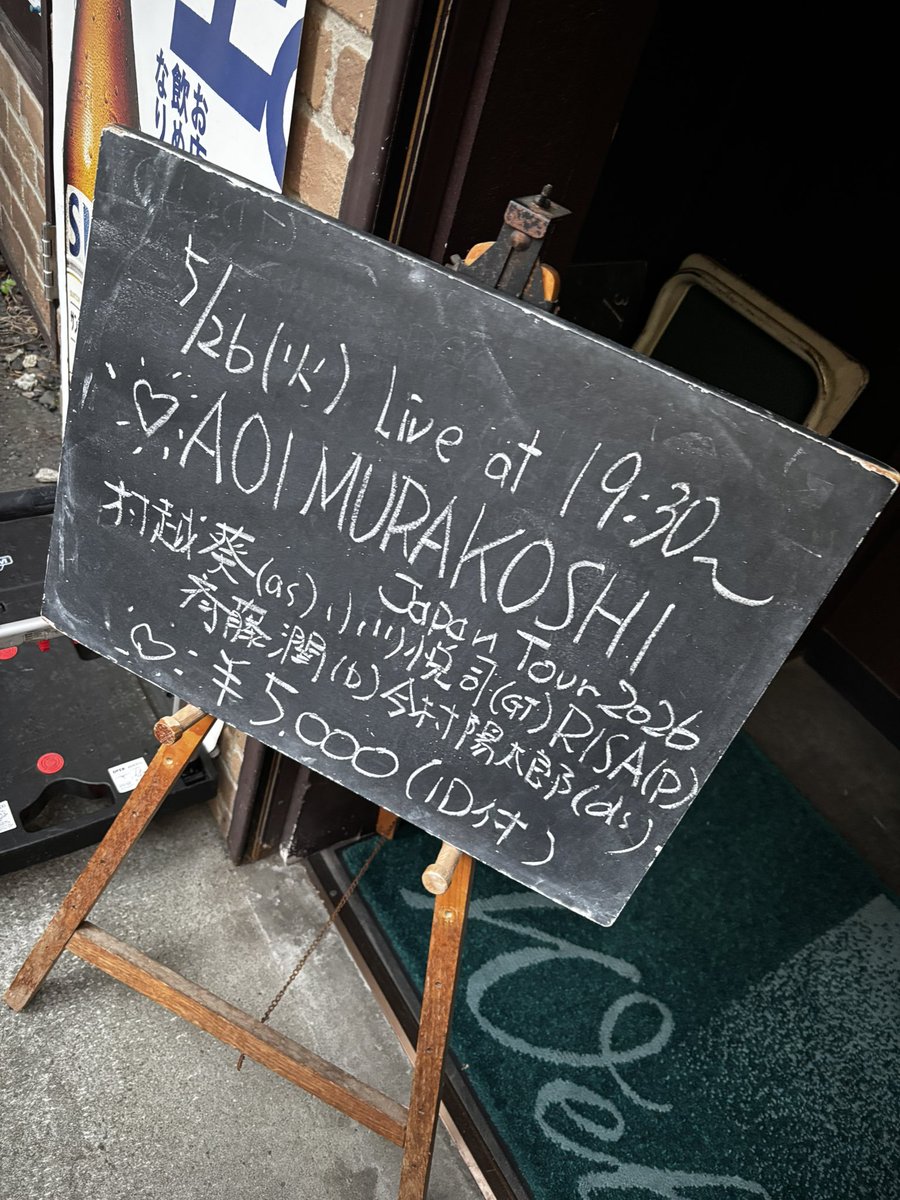 お店
飲め
なり
S
5/26(火) Live at 19:30~
♡AOI MURAKOSHI
Japan Tour 2026
村越葵(as)小川悦司(GT)RISA(P)
斉藤潤(b)今村陽太郎(ds)
♡¥5.000(1D付)
Wel